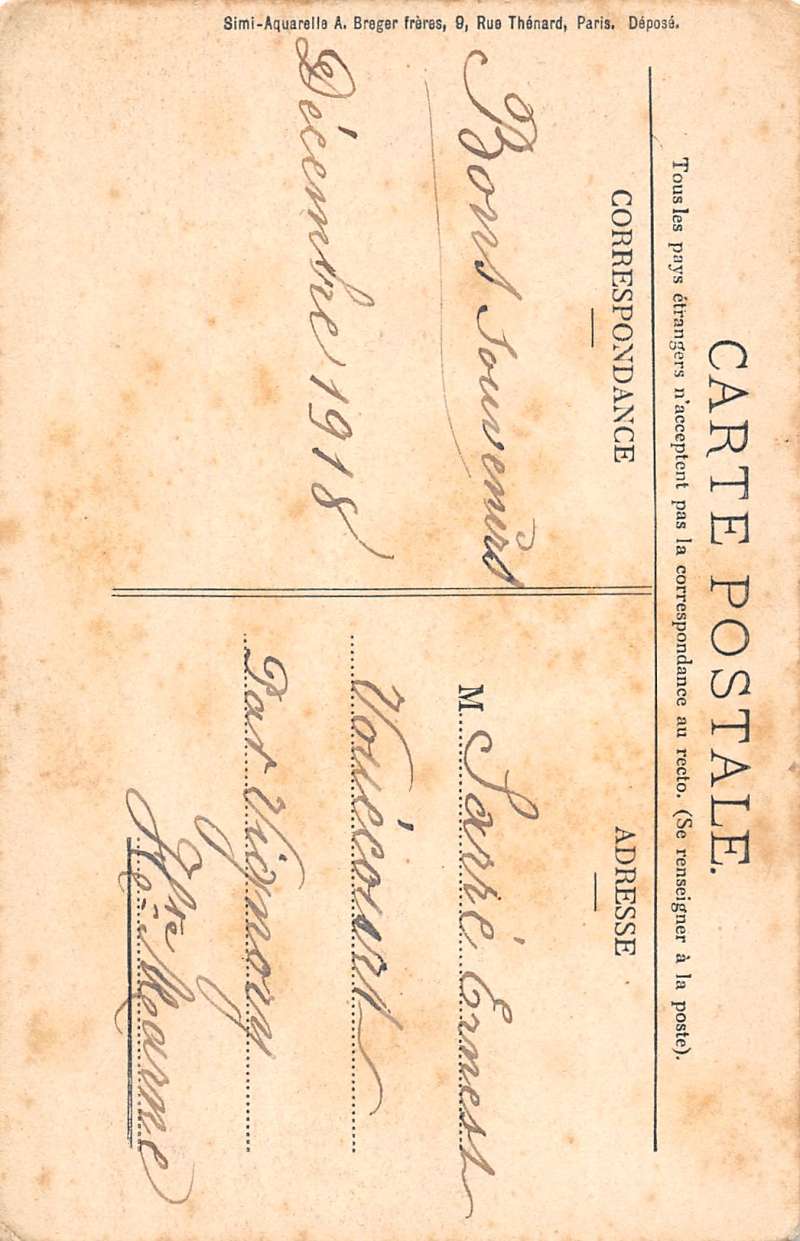 CARTE POSTALE.
Tous les pays étrangers n'acceptent pas la correspondance au recto. (Se renseigner à la poste).
CORRESPONDANCE
Bons souvenirs
Décembre 1918
ADRESSE
M. Sarré Ernest
Vouécourt
Par Vignory
Hte Marne
Simi-Aquarelle A. Breger frères, 9, Rue Thénard, Paris. Déposé.